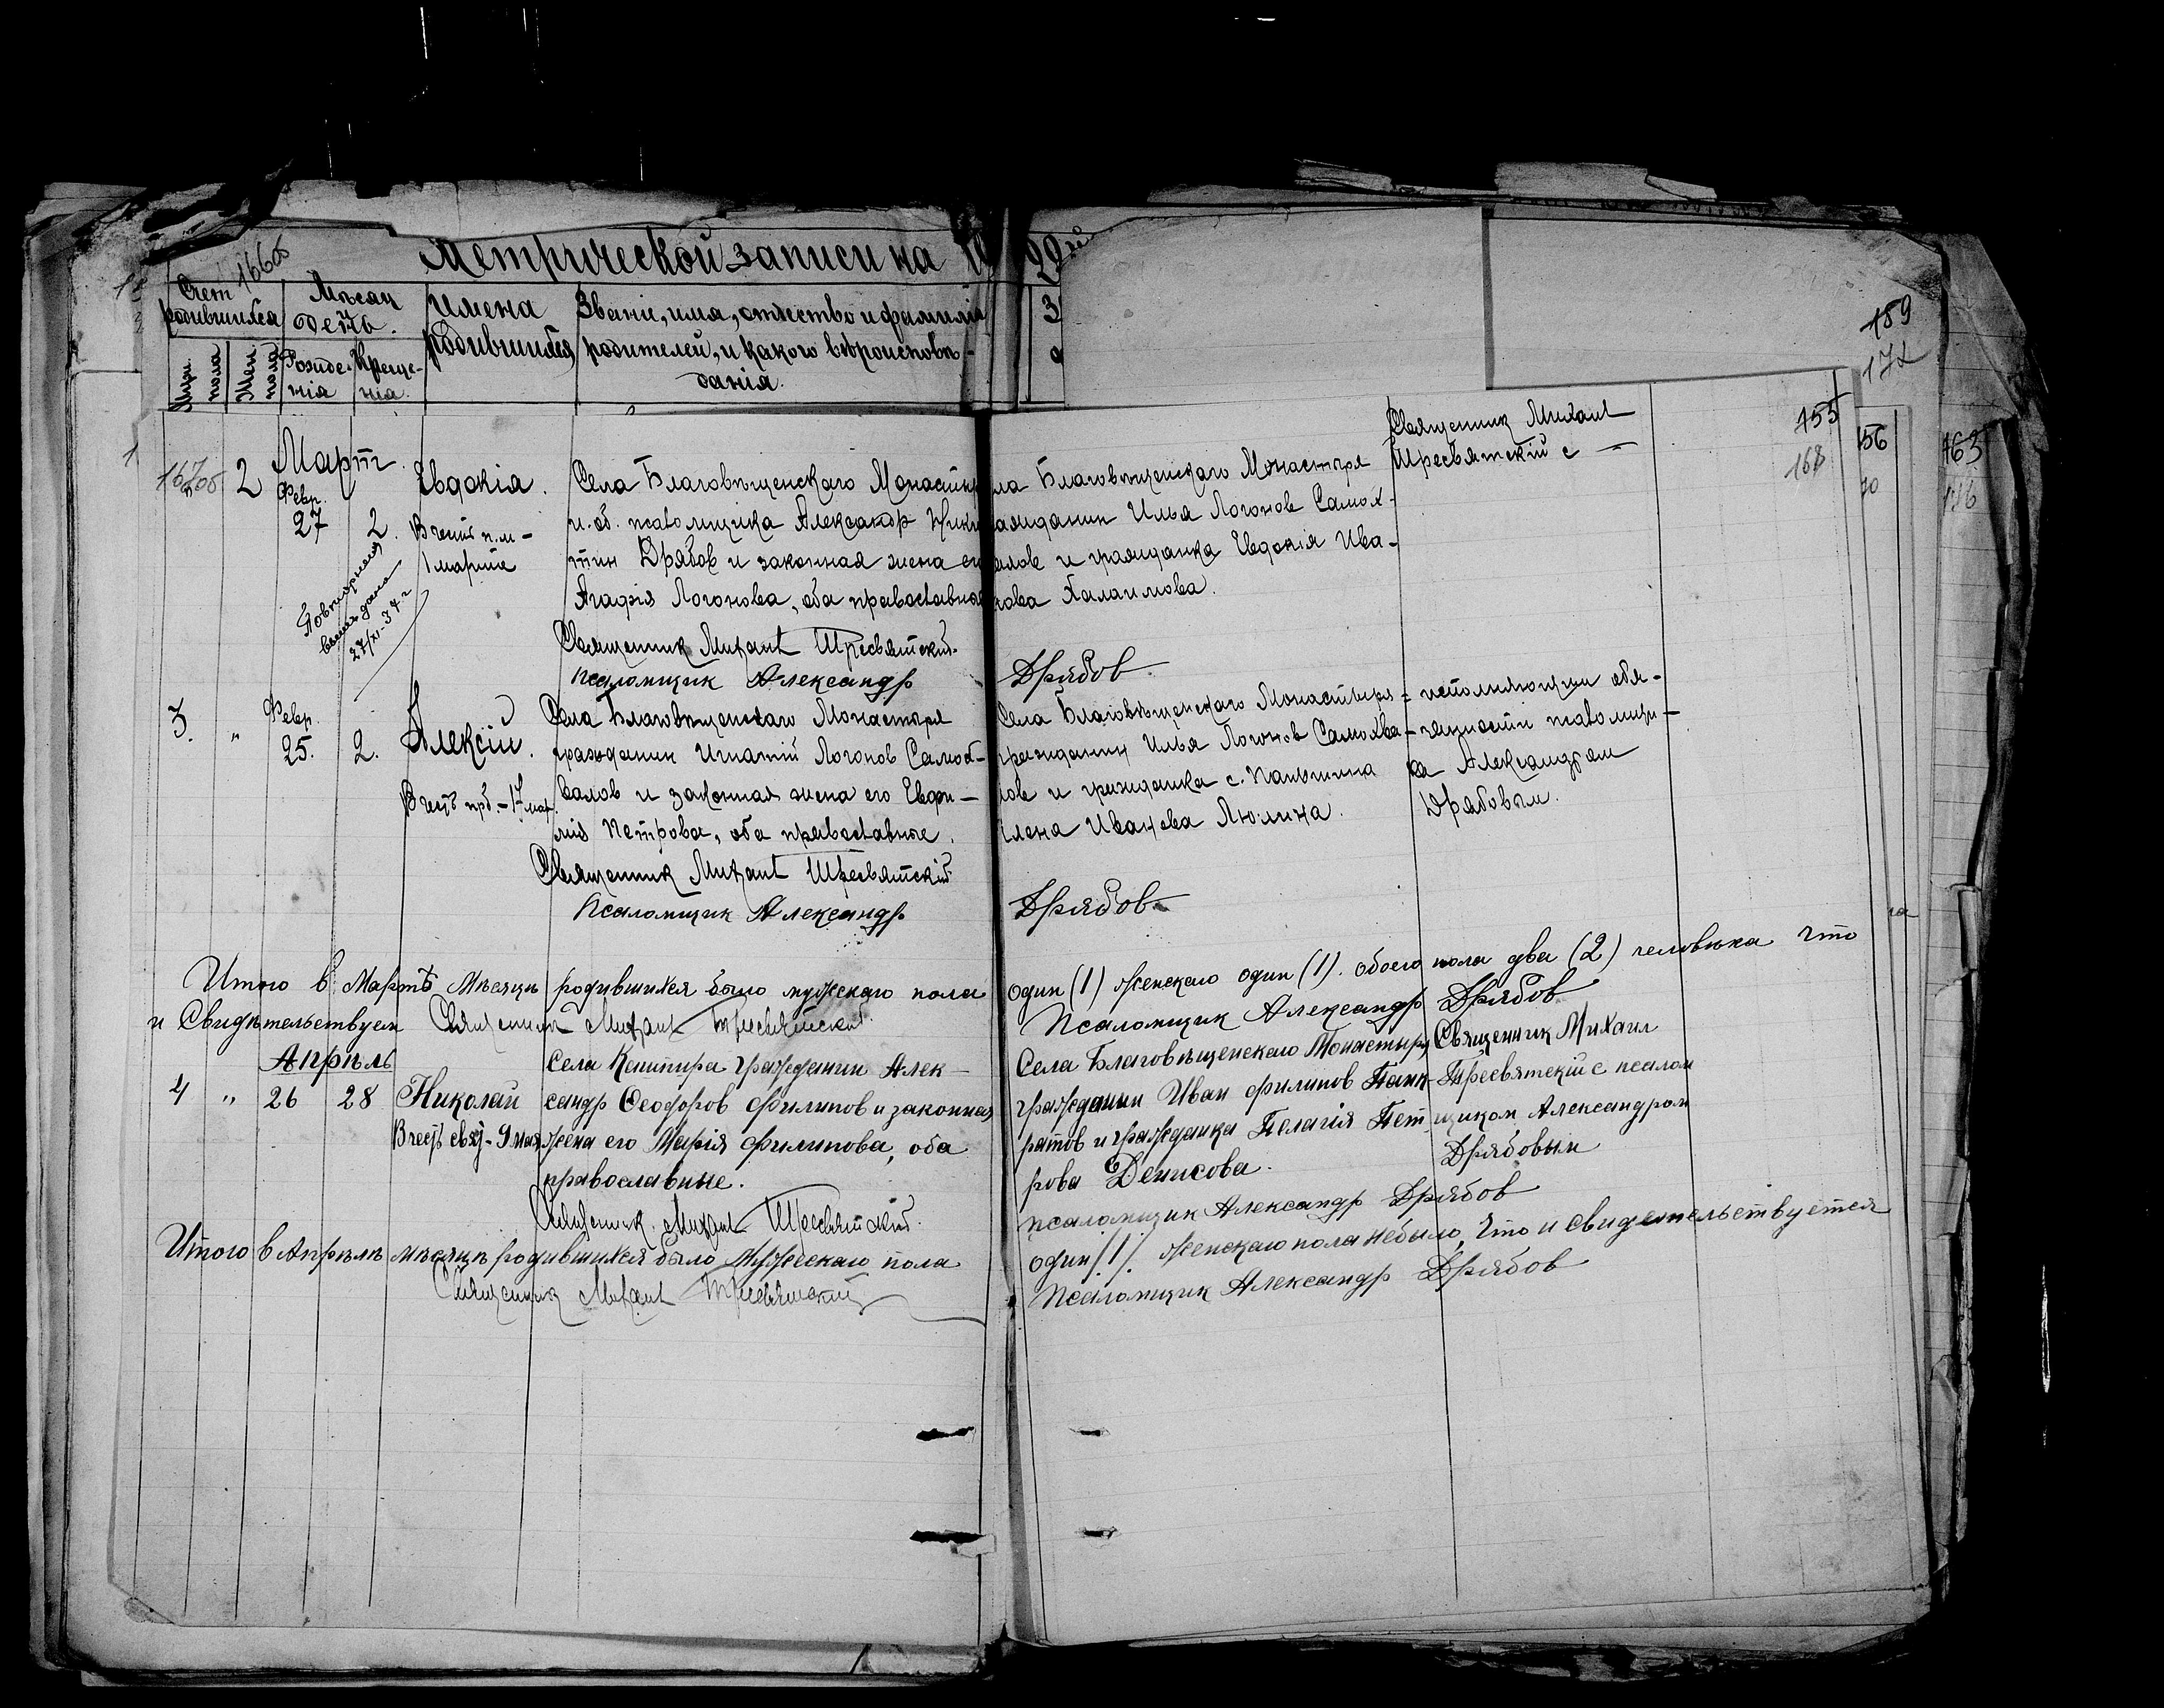 Метрической записи на 19
22й
166об
Счет родившихся
Муж. пола
Жен. пола
Мѣсяц и день.
Рожденія
Крещенія.
Имена родившихся
Званіе, имя, отчество и фамилія
родителей, и какого вѣроисповѣ-
данія.
159
172
155
168
156
163
167об
2
Март.
Февр.
27
2.
Евдокія.
1 марта
Села Благовѣщенскаго Монасты
и. об. псаломщика Александр Ники
тин Дрябов и законная жена его
Агафія Логонова, оба православная
Священник Михаил Тресвятский.
Псаломщик Александр
Повторная
выпись дана
27/XI-37 г
ла Благовѣщенскаго Монастыря
ажданин Илья Логонов Самох-
валов и гражданка Евдокія Ива-
нова Халапмова.
Дрябов.
Священник Михаил
Тресвятскій с
3.
"
Февр.
25.
2.
Алексій.
В честь прб. - 17 мар.
Села Благовѣщенскаго Монастыря
гражданин Игнатій Логонов Самох-
валов и законная жена его Евфи-
мія Петрова, оба православные.
Священник Михаил Тресвятскій
Псаломщик Александр
Села Благовѣщенскаго Монастыря
гражданин Илья Логонов Самохва-
лов и гражданка с.
Елена Иванова Люлина.
Дрябов
исполняющим обя-
занности псаломщи-
ка Александром
Дрябовым.
Итого в Мартѣ Мѣсяцѣ родившихся было мужскаго пола
один (1) женскаго один (1). обоего пола два (2) человѣка что
и Свидѣтельствуем Священник Михаил Тресвятский.
Псаломщик Александр Дрябов
Апрѣль
4
"
26
28
Николай
В честь свят - 9 мая
Села Канштра гражданин Алек-
сандр Феодоров Филипов и законная
жена его Марія Филипова, оба
православные.
Священник Михаил Тресвятский.
Села Благовѣщенскаго Монастыря
гражданин Иван Филипов Панк-
ратов и гражданка Пелагія Пет
рова Денисова.
псаломщик Александр Дрябов
Священник Михаил
Тресвятскій с псалом
щиком Александром
Дрябовым
Итого в Апрѣлѣ мѣсяцѣ родившихся было Мужескаго пола
один /1/. женскаго пола небыло, что и свидетельствуется
Священник Михаил Тресвятский
Псаломщик Александр Дрябов